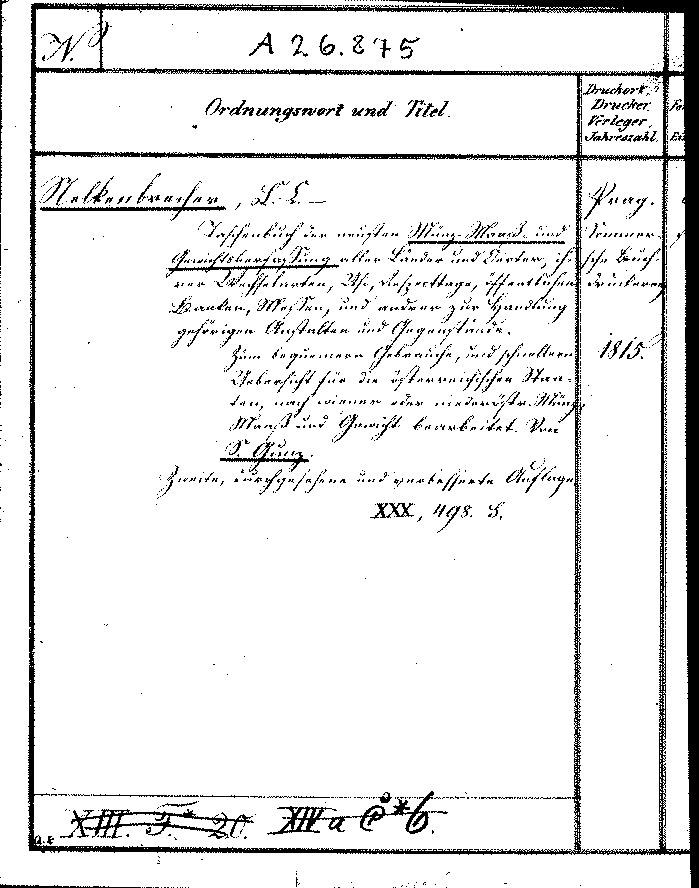 N. A 26.875
Ordnungswort und Titel.
Druckort,
Drucker,
Verleger,
Jahreszahl.
Nelkenbrecher, L. C. —
Taschenbuch der neusten Münz- Maaß- und
Gewichtsverfassung aller Länder und Örter, ih-
rer Wechselarten, Uso, Respecttage, öffentlichen
Banken, Messen, und andrer zur Handlung
gehörigen Anstalten und Gegenstände.
Zum bequemern Gebrauche, und schnellern
Uebersicht für die österreichischen Staa-
ten, nach wiener oder niederöstr. Münz,
Maaß und Gewicht bearbeitet von
S. Gunz.
Zweite, durchgesehene und verbesserte Auflage
XXX, 498. S.
Prag.
Sommer-
sche Buch-
druckerey
1815.
XIII. F.* 20. XIV a *6.